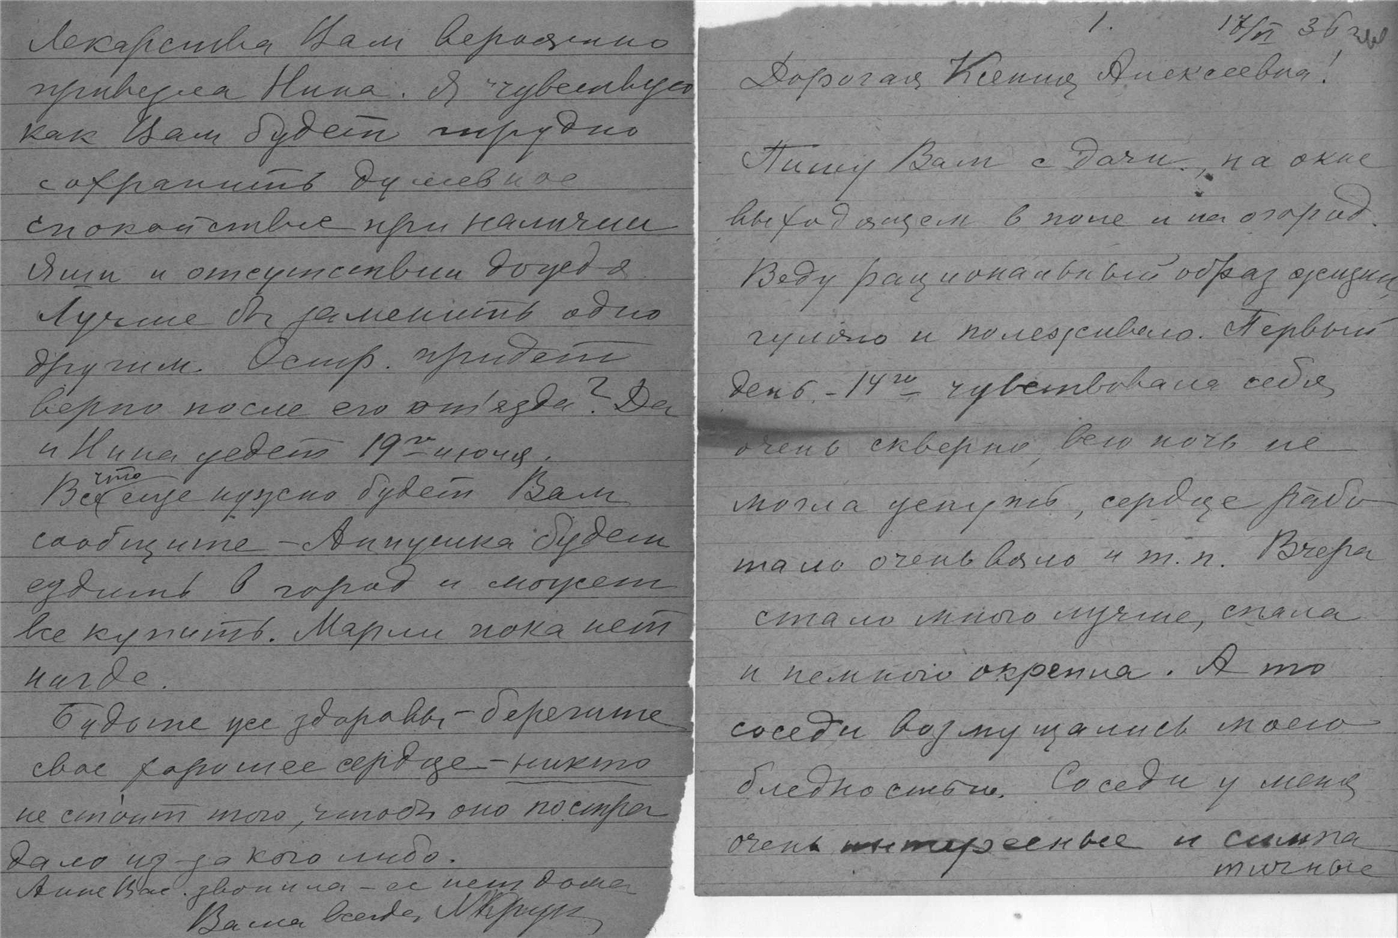 Лекарства Вам вероятно
привезла Нина. Я чувствую
как Вам будет трудно
сохранить душевное
спокойствие при наличии
Яши и отсутствии дождя
Лучше бы заменить одно
другим. Остр. придет
верно после его отъезда? Да
и Нина уедет 19го июля.
Все что еще нужно будет Вам
сообщите – Аннушка будет
ездить в город и может
все купить. Марли пока нет
нигде.
Будьте же здоровы – берегите
свое хорошее сердце – никто
не стоит того, чтобы оно постра
дало из-за кого либо.
Анне Вас. звонила – ее нет дома
Ваша всегда
1.
17/VI 36
Дорогая Ксения Алексеевна!
Пишу Вам с дачи, на окне
выходящем в поле и на огород.
Веду рациональный образ жизни,
гуляю и полеживаю. Первый
день – 14го чувствовала себя
очень скверно, всю ночь не
могла уснуть, сердце рабо
тало очень вяло и т.п. Вчера
стало много лучше, спала
и немного окрепла. А то
соседи возмущались моею
бледностью. Соседи у меня
очень интересные и симпа
тичные